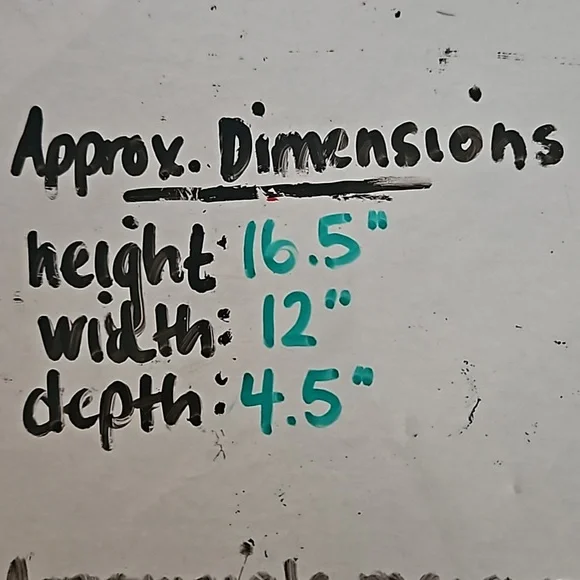 Approx. Dimensions
height: 16.5"
width: 12"
depth: 4.5"